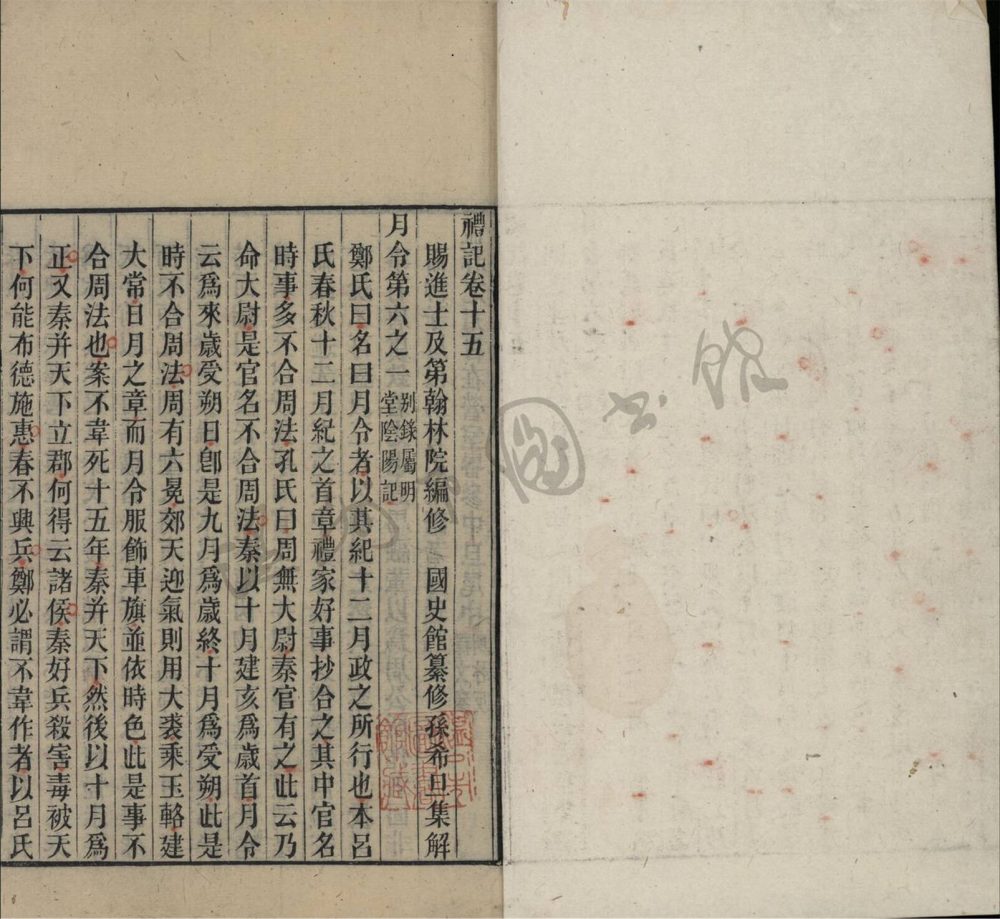 禮記卷十五
賜進士及第翰林院編修 國史館纂修孫希旦集解
月令第六之一別錄屬明堂陰陽記
鄭氏曰名曰月令者以其紀十二月政之所行也本呂
氏春秋十二月紀之首章禮家好事抄合之其中官名
時事多不合周法孔氏曰周無大尉秦官有之此云乃
命大尉是官名不合周法秦以十月建亥爲歲首月令
云爲來歲受朔日卽是九月爲歲終十月爲受朔此是
時不合周法周有六冕郊天迎氣則用大裘乘玉輅建
大常日月之章而月令服飾車旗並依時色此是事不
合周法也案不韋死十五年秦并天下然後以十月爲
正又秦并天下立郡何得云諸侯秦好兵殺害毒被天
下何能布德施惠春不興兵鄭必謂不韋作者以呂氏